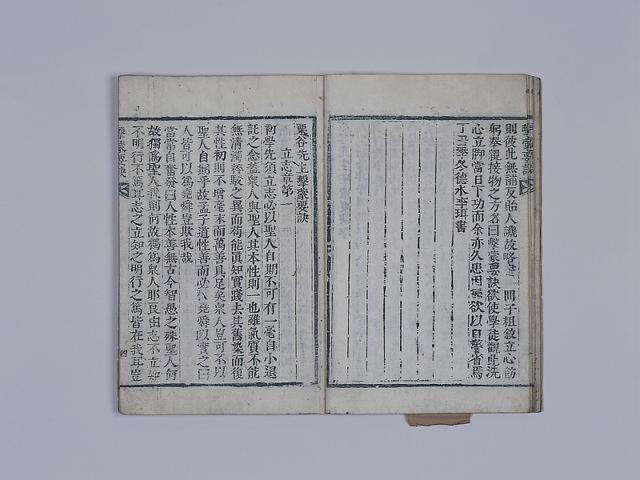 擊蒙要訣
則彼此無補反貽人譏故略書一冊子粗敍立心飭
躬奉親接物之方名曰擊蒙要訣欲使學徒觀此洗
心立脚當日下功而余亦久患因循欲以自警省焉
丁丑季冬德水李珥書
栗谷先生擊蒙要訣
立志章第一
初學先須立志必以聖人自期不可有一毫自小退
託之念蓋衆人與聖人其本性則一也雖氣質不能
無淸濁粹駁之異而苟能眞知實踐去其舊染而復
其性初則不增毫末而萬善具足矣衆人豈可不以
聖人自期乎故孟子道性善而必稱堯舜以實之曰
人皆可以爲堯舜豈欺我哉
當常自奮發曰人性本善無古今智愚之殊聖人何
故獨爲聖人我則何故獨爲衆人耶良由志不立知
不明行不篤耳志之立知之明行之篤皆在我耳豈
擊蒙要訣